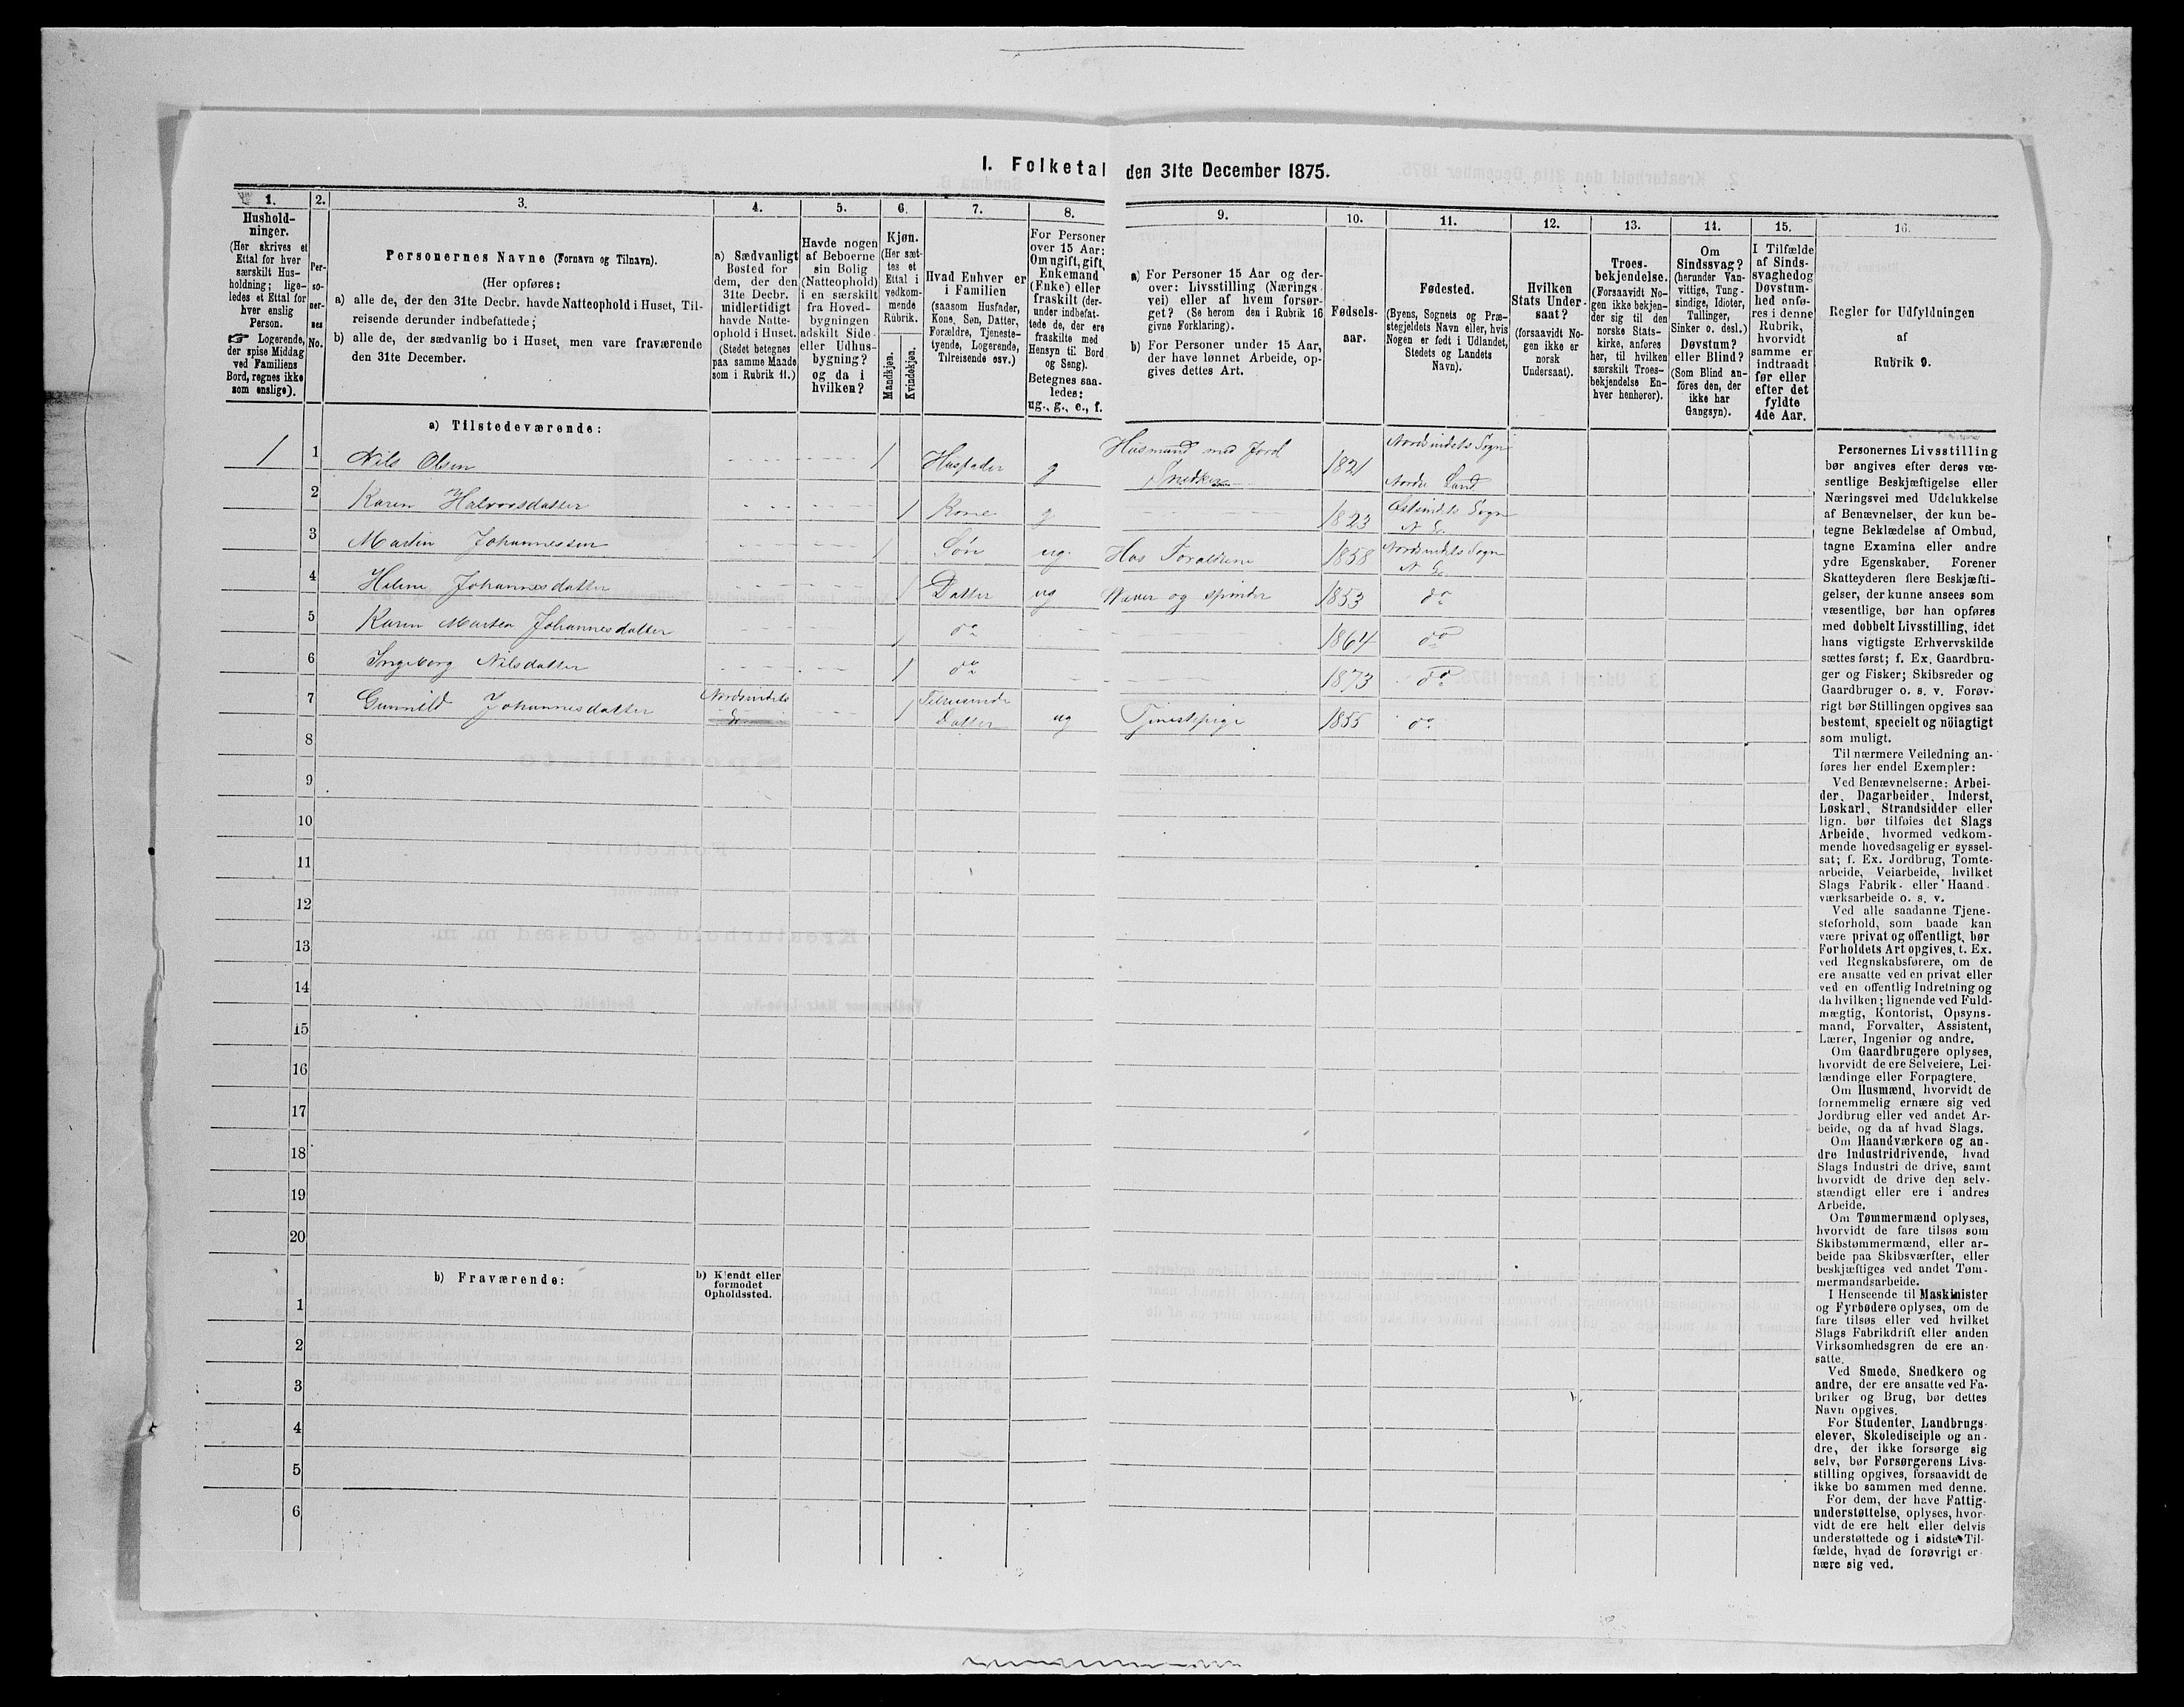 I. Folketal den 31te December 1875.
1.
Hushold-
ninger.
(Her skrives et
Ettal for hver
særskilt Hus-
holdning; lige-
ledes et Ettal for
hver enslig
Person.
☞ Logerende,
der spise Middag
ved Familiens
Bord, regnes ikke
som enslige).
2.
Per-
so-
ner-
nes
No.
3.
Personernes Navne (Fornavn og Tilnavn).
(Her opføres:
a) alle de, der den 31te Decbr. havde Natteophold i Huset, Til-
reisende derunder indbefattede;
b) alle de, der sædvanlig bo i Huset, men vare fraværende
den 31te December.
4.
a) Sædvanligt
Bosted for
dem, der den
31te Decbr.
midlertidigt
havde Natte-
ophold i Huset.
(Stedet betegnes
paa samme Maade
som i Rubrik 11.)
5.
Havde nogen
af Beboerne
sin Bolig
(Natteophold)
i en særskilt
fra Hoved-
bygningen
adskilt Side-
eller Udhus-
bygning?
og da i
hvilken?
6.
Kjøn.
(Her sæt-
tes et
Ettal i
vedkom-
mende
Rubrik.
Mandkjøn.
Kvindekjøn.
7.
Hvad Enhver er
i Familien
(saasom Husfader,
Kone, Søn, Datter,
Forældre, Tjeneste-
tyende, Logerende,
Tilreisende osv.)
8.
For Personer
over 15 Aar:
Om ugift, gift,
Enkemand
(Enke) eller
fraskilt (der-
under indbefat-
tede de, der ere
fraskilte med
Hensyn til Bord
og Seng).
Betegnes saa-
ledes:
ug., g., e., f.
9.
a) For Personer 15 Aar og der-
over: Livsstilling (Nærings-
vei) eller af hvem forsør-
get? (Se herom den i Rubrik 16
givne Forklaring).
b) For Personer under 15 Aar,
der have lønnet Arbeide, op-
gives dettes Art.
10.
Fødsels-
aar.
11.
Fødested.
(Byens, Sognets og Præ-
stegjeldets Navn eller, hvis
Nogen er født i Udlandet,
Stedets og Landets
Navn).
12.
Hvilken
Stats Under-
saat?
(forsaavidt No-
gen ikke er
norsk
Undersaat).
13.
Troes-
bekjendelse.
(Forsaavidt No-
gen ikke bekjen-
der sig til den
norske Stats-
kirke, anføres
her, til hvilken
særskilt Troes-
bekjendelse En-
hver henhører).
14.
Om
Sindssvag?
(herunder Van-
vittige, Tung-
sindige, Idioter,
Tullinger,
Sinker o. desl.)
Døvstum?
eller Blind?
(Som Blind an-
føres den, der
ikke har
Gangsyn).
15.
I Tilfælde
af Sinds-
svaghed og
Døvstum-
hed anfø-
res i denne
Rubrik,
hvorvidt
samme er
indtraadt
før eller
efter det
fyldte
4de Aar.
16.
Regler for Udfyldningen
af
Rubrik 9.
a) Tilstedeværende:
1 1 Nils Olsen 1 Husfader g Husmand med Jord Snedker 1821 Nordsindets Sogn Nordre Land
2 Karen Halvorsdatter 1 Kone g 1823 Østsindets Sogn N L.
3 Martin Johannessen 1 Søn ug. Hos Forældrene 1858 Nordsindets Sogn N L.
4 Helene Johannesdatter 1 Datter ug Væver og spinder 1853 do
5 Karen Martea Johannesdatter 1 do 1864 do
6 Ingeborg Nilsdatter 1 do 1873 do
7 Gunnild Johannesdatter Nordsindets 1 Tilreisende Datter ug Tjenestepige 1855 do
8
9
10
11
12
13
14
15
16
17
18
19
20
b) Fraværende:
b) Kjendt eller
formodet
Opholdssted.
1
2
3
4
5
6
Personernes Livsstilling
bør angives efter deres væ-
sentlige Beskjæftigelse eller
Næringsvei med Udelukkelse
af Benævnelser, der kun be-
tegne Beklædelse af Ombud,
tagne Examina eller andre
ydre Egenskaber. Forener
Skatteyderen flere Beskjæfti-
gelser, der kunne ansees som
væsentlige, bør han opføres
med dobbelt Livsstilling, idet
hans vigtigste Erhvervskilde
sættes først; f. Ex. Gaardbru-
ger og Fisker; Skibsreder og
Gaardbruger o. s. v. Forøv-
rigt bør Stillingen opgives saa
bestemt, specielt og nöiagtigt
som muligt.
Til nærmere Veiledning an-
føres her endel Exempler:
Ved Benævnelserne: Arbei-
der, Dagarbeider, Inderst,
Løskarl, Strandsidder eller
lign. bør tilføies det Slags
Arbeide, hvormed vedkom-
mende hovedsagelig er syssel-
sat; f. Ex. Jordbrug, Tomte-
arbeide, Veiarbeide, hvilket
Slags Fabrik- eller Haand-
værksarbeide o. s. v.
Ved alle saadanne Tjene-
steforhold, som baade kan
være privat og offentligt, bør
Forholdets Art opgives, t. Ex.
ved Regnskabsførere, om de
ere ansatte ved en privat eller
ved en offentlig Indretning og
da hvilken; lignende ved Fuld-
mægtig, Kontorist, Opsyns-
mand, Forvalter, Assistent,
Lærer, Ingeniør og andre.
Om Gaardbrugere oplyses,
hvorvidt de ere Selveiere, Lei-
lændinge eller Forpagtere.
Om Husmænd, hvorvidt de
fornemmelig ernære sig ved
Jordbrug eller ved andet Ar-
beide, og da af hvad Slags.
Om Haandværkere og an-
dre Industridrivende, hvad
Slags Industri de drive, samt
hvorvidt de drive den selv-
stændigt eller ere i andres
Arbeide.
Om Tømmermænd oplyses,
hvorvidt de fare tilsøs som
Skibstømmermænd, eller ar-
beide paa Skibsværfter, eller
beskjæftiges ved andet Tøm-
mermandsarbeide.
I Henseende til Maskinister
og Fyrbødere oplyses, om de
fare tilsøs eller ved hvilket
Slags Fabrikdrift eller anden
Virksomhedsgren de ere an-
satte.
Ved Smede, Snedkere og
andre, der ere ansatte ved Fa-
briker og Brug, bør dettes
Navn opgives.
For Studenter, Landbrugs-
elever, Skoledisciple og an-
dre, der ikke forsørge sig
selv, bør Forsørgerens Livs-
stilling opgives, forsaavidt de
ikke bo sammen med denne.
For dem, der have Fattig-
understøttelse, oplyses, hvor-
vidt de ere helt eller delvis
understøttede og i sidste Til-
fælde, hvad de forøvrigt er-
nære sig ved.